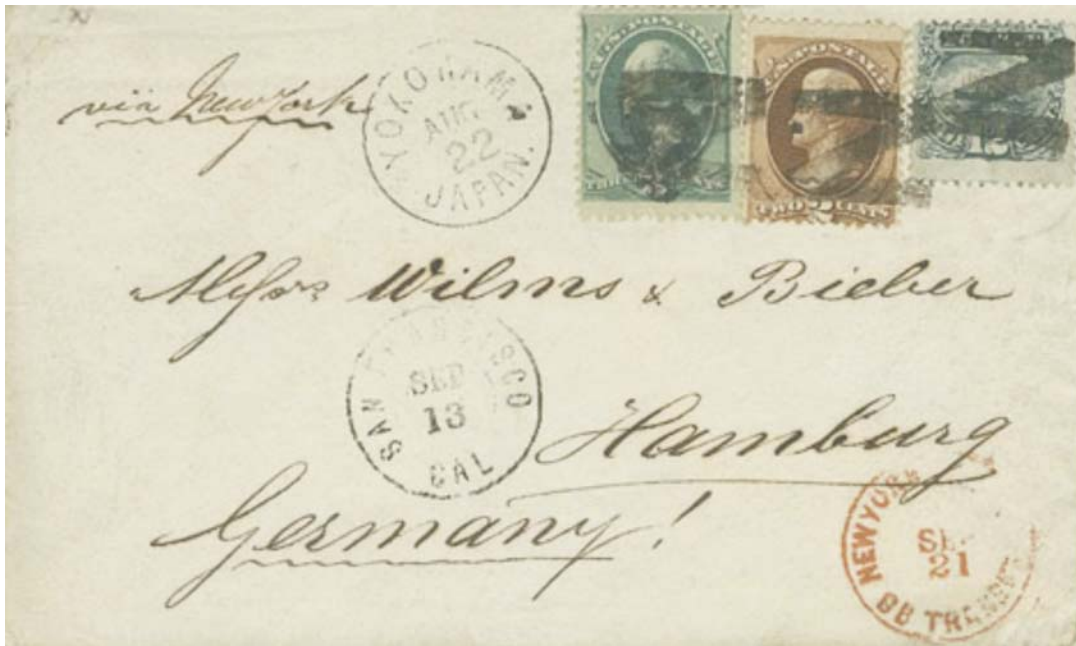 via New York
YOKOHAMA
AUG
22
JAPAN.
U.S. POSTAGE
THREE CENTS
U.S. POSTAGE
TWO 2 CENTS
Messrs Wilms & Bieber
SAN FRANCISCO
SEP
13
CAL
Hamburg
Germany!
NEW YORK
SE
21
BR TRANSIT